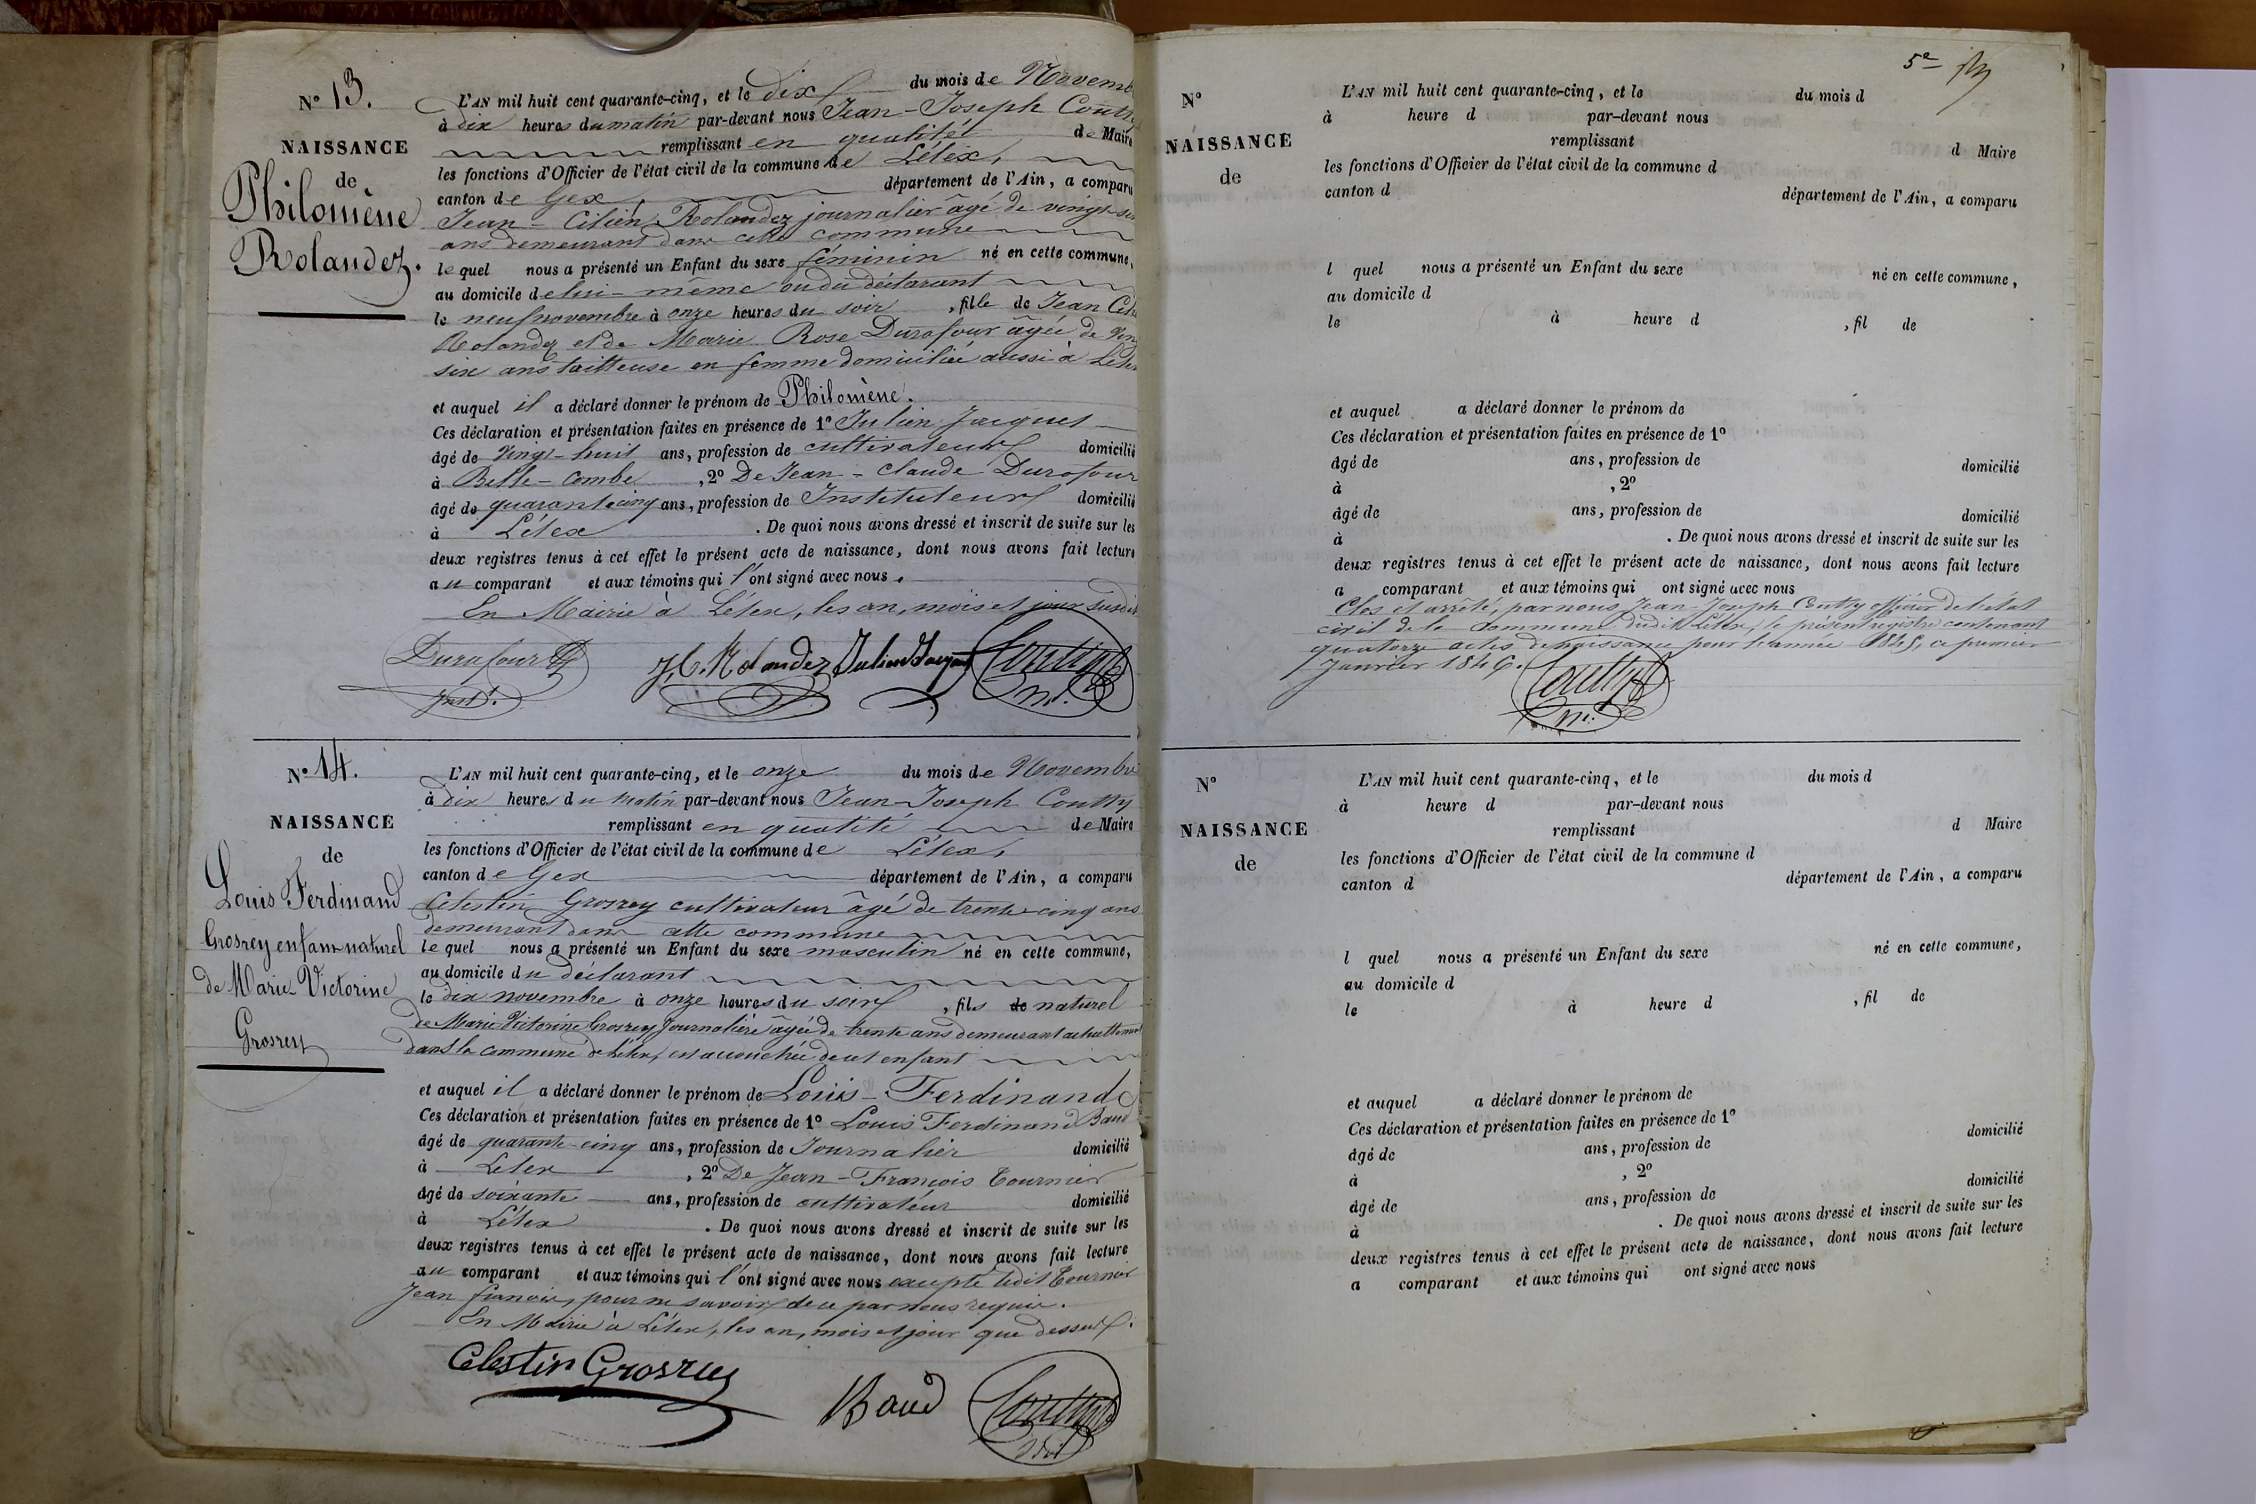 N° 13.
NAISSANCE
de
Philomène
Rolandez.
L'AN mil huit cent quarante-cinq, et le dix du mois de Novemb
à dix heures du matin par-devant nous Jean-Joseph Coutty
remplissant en qualité de Maire
les fonctions d'Officier de l'état civil de la commune de Lélex,
canton de Gex département de l'Ain, a comparu
Jean - Rolandez journalier âgé de vingt-six
ans demeurant dans cette commune
lequel nous a présenté un Enfant du sexe féminin né en cette commune,
au domicile de lui-même ou du déclarant
le neuf novembre à onze heures du soir, fille de Jean
Rolandez et de Marie Rose Durafour âgée de
six ans sa femme domiciliée aussi à Lélex
et auquel il a déclaré donner le prénom de Philomène.
Ces déclaration et présentation faites en présence de 1° Julien Jacques
âgé de vingt-huit ans, profession de cultivateur domicilié
à Belle-Combe, 2° De Jean-Claude Durafour
âgé de quarante cinq ans, profession de Instituteur domicilié
à Lélex. De quoi nous avons dressé et inscrit de suite sur les
deux registres tenus à cet effet le présent acte de naissance, dont nous avons fait lecture
au comparant et aux témoins qui l'ont signé avec nous.
En Mairie à Lélex, les an, mois et jour susdit
Durafour J. C. Rolandez Julien Jacques Coutty
inst. m.
N° 14.
NAISSANCE
de
Louis Ferdinand
Grosrey enfant naturel
de Marie Victorine
Grosrey
L'AN mil huit cent quarante-cinq, et le onze du mois de Novembre
à dix heures du matin par-devant nous Jean-Joseph Coutty
remplissant en qualité de Maire
les fonctions d'Officier de l'état civil de la commune de Lélex,
canton de Gex département de l'Ain, a comparu
Célestin Grosrey cultivateur âgé de trente-cinq ans
demeurant dans cette commune
lequel nous a présenté un Enfant du sexe masculin né en cette commune,
au domicile du déclarant
le dix novembre à onze heures du soir, fils de naturel
de Marie Victorine Grosrey journalière âgée de trente ans demeurant actuellement
dans la commune de Lélex, est accouchée de cet enfant
et auquel il a déclaré donner le prénom de Louis-Ferdinand
Ces déclaration et présentation faites en présence de 1° Louis Ferdinand Baud
âgé de quarante-cinq ans, profession de Journalier domicilié
à Lélex, 2° De Jean-François Tournier
âgé de soixante ans, profession de cultivateur domicilié
à Lélex. De quoi nous avons dressé et inscrit de suite sur les
deux registres tenus à cet effet le présent acte de naissance, dont nous avons fait lecture
au comparant et aux témoins qui l'ont signé avec nous excepté ledit Tournier
Jean françois, pour ne savoir de ce par nous requis.
En Mairie à Lélex, les an, mois et jour que dessus.
Celestin Grosrey Baud Coutty
5e
N°
NAISSANCE
de
L'AN mil huit cent quarante-cinq, et le du mois d
à heure d par-devant nous
remplissant d Maire
les fonctions d'Officier de l'état civil de la commune d
canton d département de l'Ain, a comparu
l quel nous a présenté un Enfant du sexe né en cette commune,
au domicile d
le à heure d, fil de
et auquel a déclaré donner le prénom de
Ces déclaration et présentation faites en présence de 1°
âgé de ans, profession de domicilié
à, 2°
âgé de ans, profession de domicilié
à. De quoi nous avons dressé et inscrit de suite sur les
deux registres tenus à cet effet le présent acte de naissance, dont nous avons fait lecture
a comparant et aux témoins qui ont signé avec nous
Clos et arrêté, par nous Jean-Joseph Coutty officier de l'état
civil de la commune dudit Lélex, le présent registre contenant
quatorze actes de naissance pour l'année 1845, ce premier
Janvier 1846.
Coutty
m.
N°
NAISSANCE
de
L'AN mil huit cent quarante-cinq, et le du mois d
à heure d par-devant nous
remplissant d Maire
les fonctions d'Officier de l'état civil de la commune d
canton d département de l'Ain, a comparu
l quel nous a présenté un Enfant du sexe né en cette commune,
au domicile d
le à heure d, fil de
et auquel a déclaré donner le prénom de
Ces déclaration et présentation faites en présence de 1°
âgé de ans, profession de domicilié
à, 2°
âgé de ans, profession de domicilié
à. De quoi nous avons dressé et inscrit de suite sur les
deux registres tenus à cet effet le présent acte de naissance, dont nous avons fait lecture
a comparant et aux témoins qui ont signé avec nous